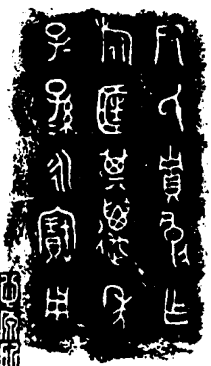 尹氏貯良乍
旅匡其邁年
子孫永寶用